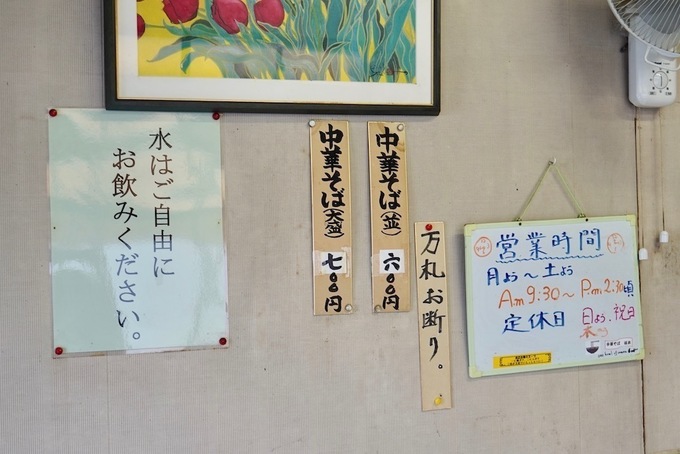 水はご自由に
お飲みください。
中華そば(並)
六〇〇円
中華そば(大盛)
七〇〇円
万札お断り。
営業時間
月よう〜土よう
Am9:30〜P.m.2:30頃
定休日
日よう、祝日